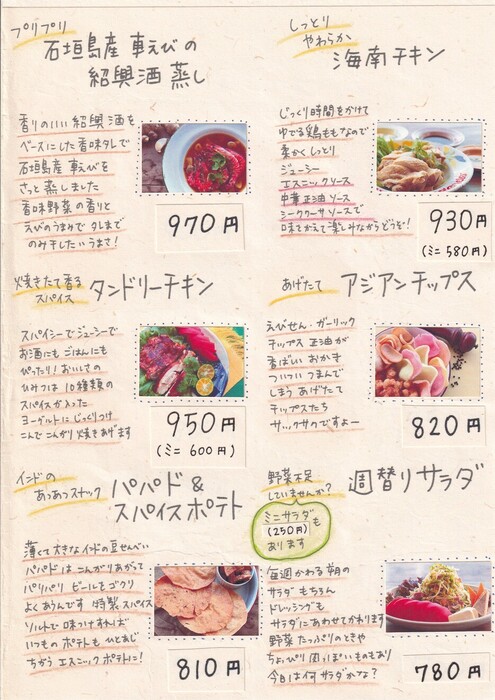 プリプリ
石垣島産 車えびの
紹興酒 蒸し
香りのいい 紹興酒を
ベースにした 香味タレで
石垣島産 車えびを
さっと 蒸しました
香味野菜の香りと
えびのうまみで タレまで
のみ干したいうまさ!
970円
しっとり
やわらか
海南チキン
じっくり時間をかけて
ゆでる鶏ももなので
柔かくしっとり
ジューシー
エスニックソース
中華正油ソース
シークワーサソースで
味をかえて楽しみながらどうぞ!
930円
(ミニ 580円)
焼きたて香る
スパイス
タンドリーチキン
スパイシーでジューシーで
お酒にもごはんにも
ぴったり! おいしさの
ひみつは 10種類の
スパイスが入った
ヨーグルトにじっくりつけ
こんでこんがり焼きあげます
950円
(ミニ 600円)
あげたて
アジアンチップス
えびせん・ガーリック
チップス 正油が
香ばしい おかき
ついつい つまんで
しまう あげたて
チップスたち
サックサクですよー
820円
インドの
あつあつスナック
パパド &
スパイスポテト
薄くて大きなインドの豆せんべい
パパドは こんがりあがって
パリパリ ビールをゴクリ
よくあうんです 特製スパイス
ソルトで味つけすれば
いつもの ポテトも ひとあじ
ちがう エスニックポテトに!
810円
野菜不足
していませんか?
週替りサラダ
ミニサラダ
(250円)も
あります
毎週かわる旬の
サラダ もちろん
ドレッシングも
サラダにあわせてかわります
野菜たっぷりのときや
ちょっぴり 固っぽいものもあり
今日は何サラダかな?
780円